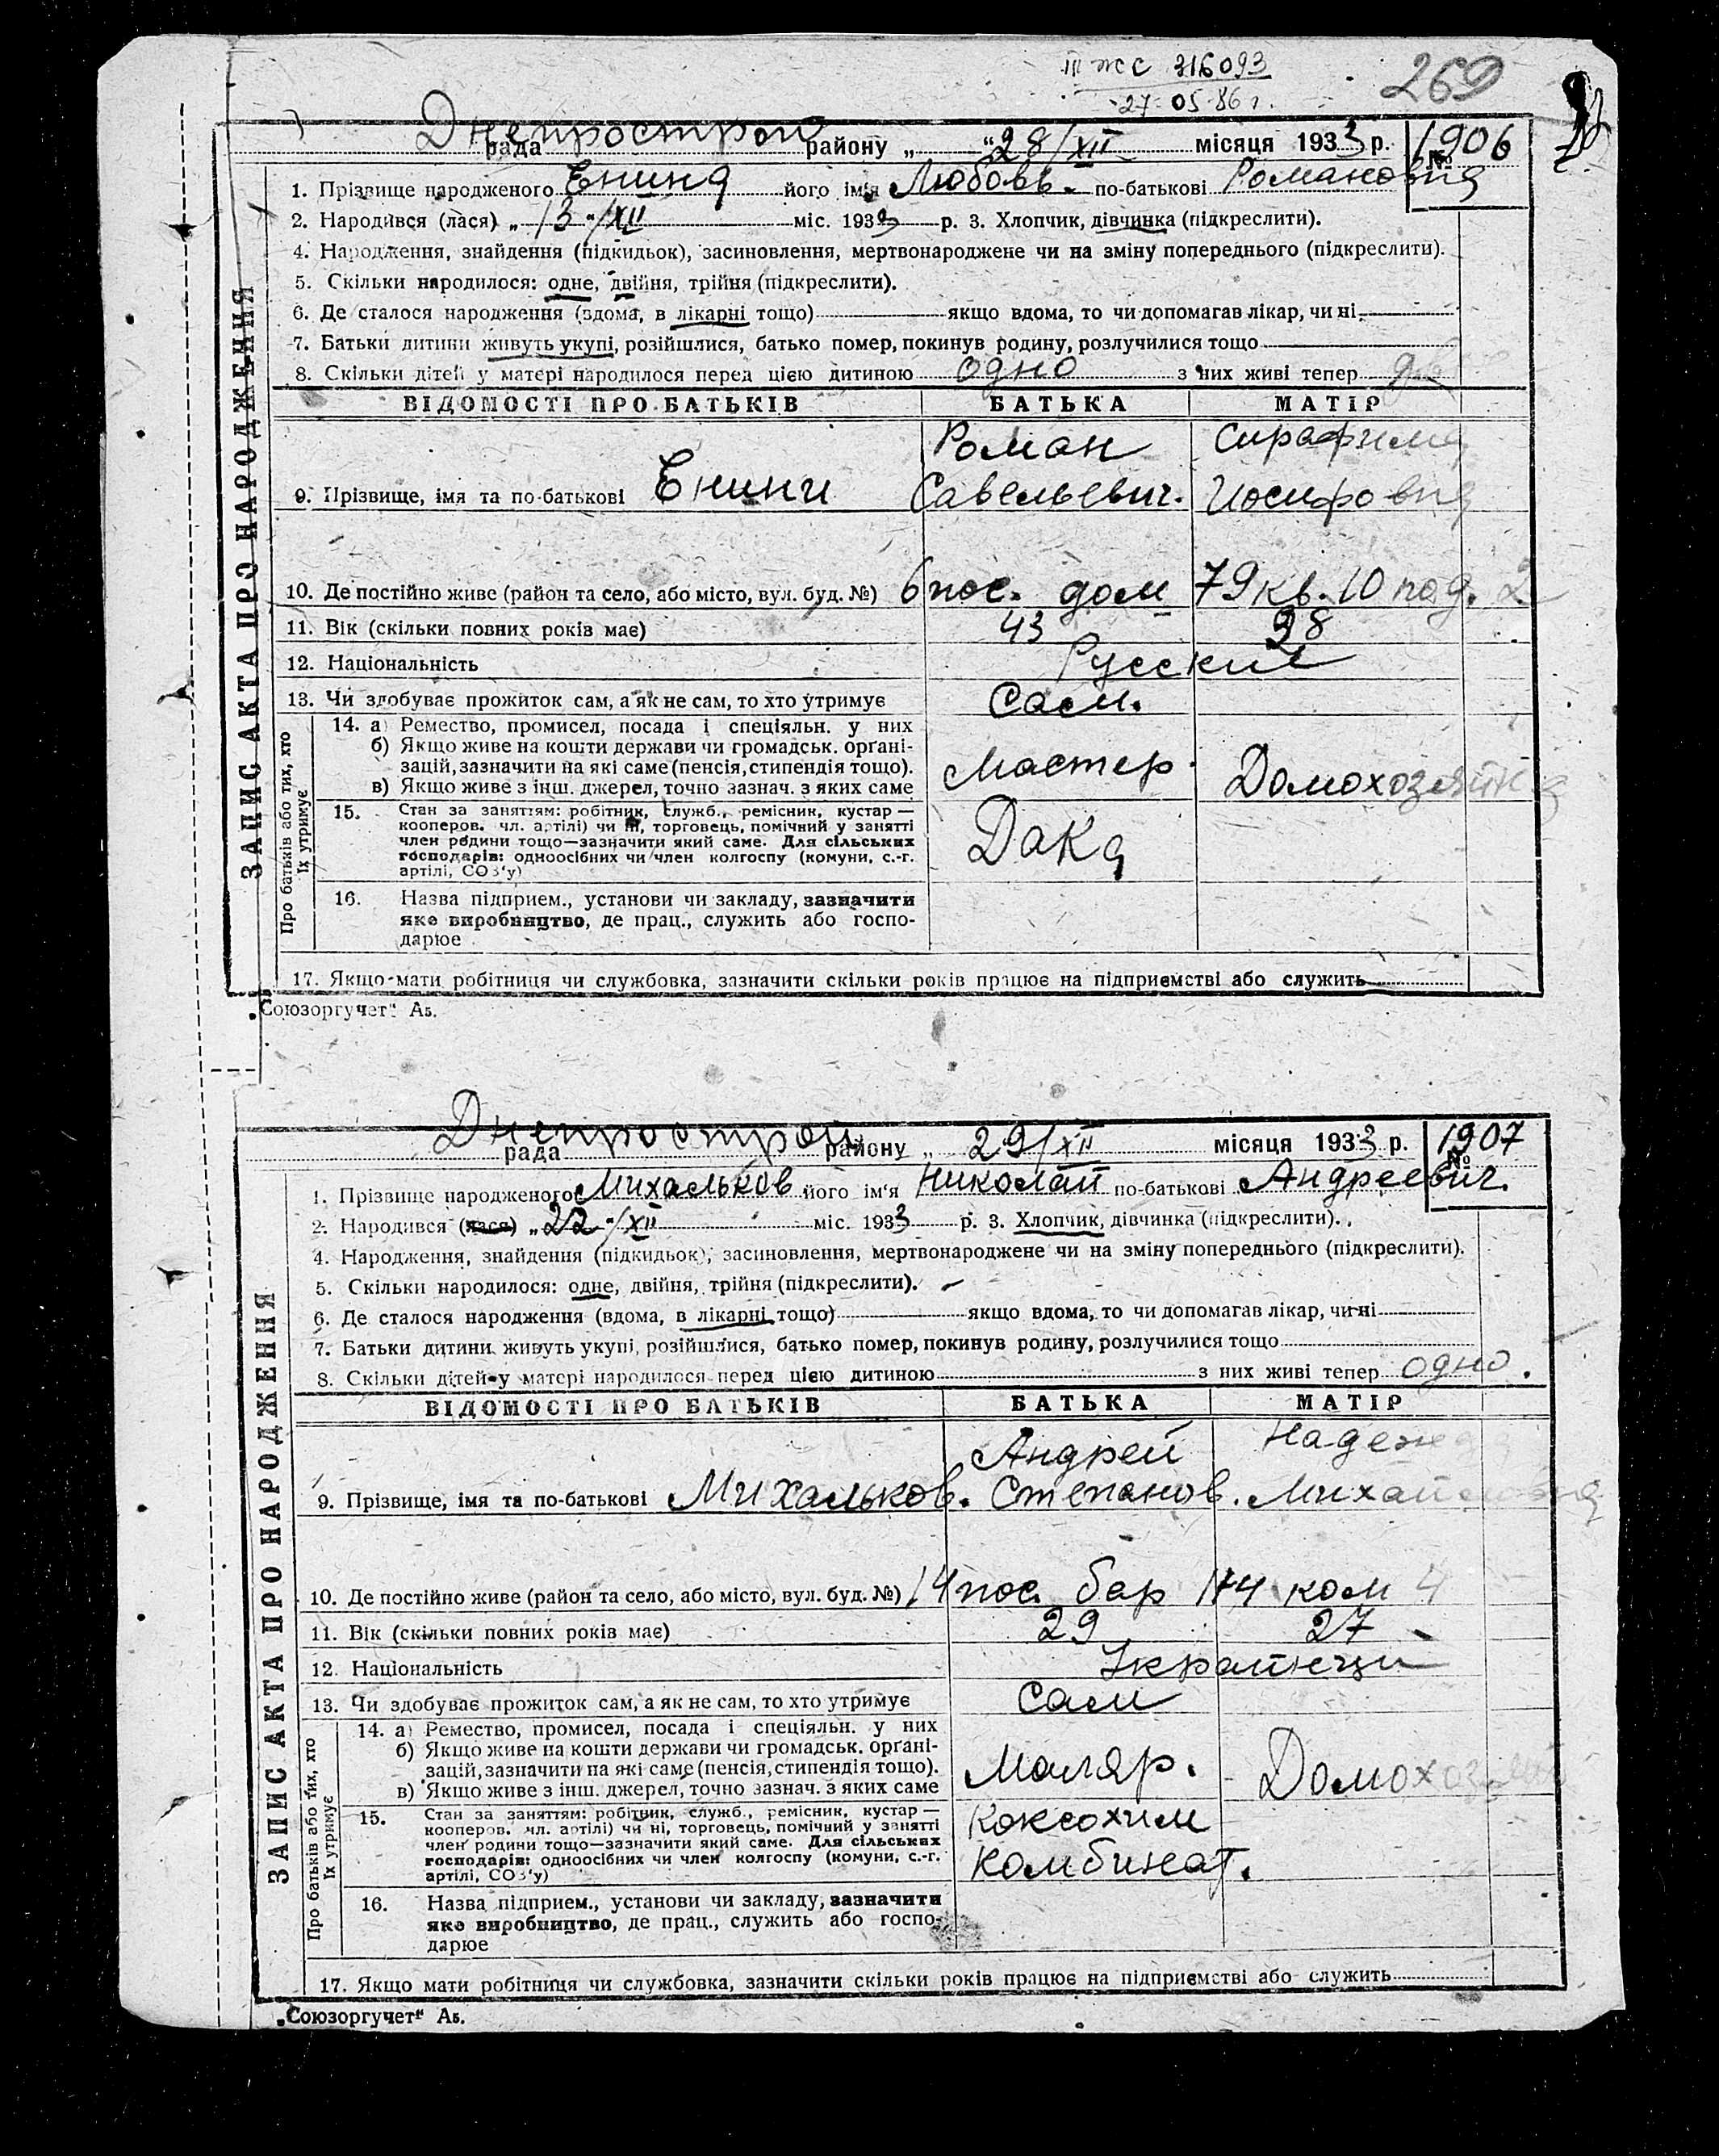 III ЖС 316093
27-05-86 г.
269
Днепрострой
рада району „ “ 28/XII місяця 1933 р. № 1906
1. Прізвище народженого Енина його ім'я Любовь. по-батькові Романовна
2. Народився (лася) „ 13 “/XII міс. 1933 р. 3. Хлопчик, дівчинка (підкреслити).
4. Народження, знайдення (підкидьок), засиновлення, мертвонароджене чи на зміну попереднього (підкреслити).
5. Скільки народилося: одне, двійня, трійня (підкреслити).
6. Де сталося народження (вдома, в лікарні тощо) якщо вдома, то чи допомагав лікар, чи ні
7. Батьки дитини живуть укупі, розійшлися, батько помер, покинув родину, розлучилися тощо
8. Скільки дітей у матері народилося перед цією дитиною одно з них живі тепер
ВІДОМОСТІ ПРО БАТЬКІВ БАТЬКА МАТІР
Роман Сирафима
9. Прізвище, імя та по-батькові Енини Савельевич. Иосифовна
10. Де постійно живе (район та село, або місто, вул. буд. №) 6 пос. дом 79 кв. 10 под. 2
11. Вік (скільки повних років має) 43 38
12. Національність Русские
13. Чи здобуває прожиток сам, а як не сам, то хто утримує Сам.
14. а) Ремество, промисел, посада і спеціяльн. у них
б) Якщо живе на кошти держави чи громадськ. орґані-
зацій, зазначити на які саме (пенсія, стипендія тощо).
в) Якщо живе з інш. джерел, точно зазнач. з яких саме
Мастер. Домохозяйка
15. Стан за заняттям: робітник, служб., ремісник, кустар —
кооперов. чл. артілі) чи ні, торговець, помічний у занятті
член родини тощо—зазначити який саме. Для сільських
господарів: одноосібних чи член колгоспу (комуни, с.-г.
артілі, СОЗ'у)
Дака
16. Назва підприєм., установи чи закладу, зазначити
яке виробництво, де прац., служить або госпо-
дарює
17. Якщо мати робітниця чи службовка, зазначити скільки років працює на підприємстві або служить
Про батьків або тих, хто
їх утримує
ЗАПИС АКТА ПРО НАРОДЖЕННЯ
„Союзоргучет“ А5.
Днепрострой
рада району „ 29/XII місяця 1933 р. № 1907
1. Прізвище народженого Михальков його ім'я Николай по-батькові Андреевич.
2. Народився (лася) „ 22 “/XII міс. 1933 р. 3. Хлопчик, дівчинка (підкреслити).
4. Народження, знайдення (підкидьок), засиновлення, мертвонароджене чи на зміну попереднього (підкреслити).
5. Скільки народилося: одне, двійня, трійня (підкреслити).
6. Де сталося народження (вдома, в лікарні тощо) якщо вдома, то чи допомагав лікар, чи ні
7. Батьки дитини живуть укупі, розійшлися, батько помер, покинув родину, розлучилися тощо
8. Скільки дітей у матері народилося перед цією дитиною з них живі тепер одно.
ВІДОМОСТІ ПРО БАТЬКІВ БАТЬКА МАТІР
Андрей Надежда
9. Прізвище, імя та по-батькові Михальков. Степанов. Михайловна
10. Де постійно живе (район та село, або місто, вул. буд. №) 14 пос. бар 174 ком 4
11. Вік (скільки повних років має) 29 27
12. Національність Украинци
13. Чи здобуває прожиток сам, а як не сам, то хто утримує Сам
14. а) Ремество, промисел, посада і спеціяльн. у них
б) Якщо живе на кошти держави чи громадськ. орґані-
зацій, зазначити на які саме (пенсія, стипендія тощо).
в) Якщо живе з інш. джерел, точно зазнач. з яких саме
Маляр. Домохозяйка
15. Стан за заняттям: робітник, служб., ремісник, кустар —
кооперов. чл. артілі) чи ні, торговець, помічний у занятті
член родини тощо—зазначити який саме. Для сільських
господарів: одноосібних чи член колгоспу (комуни, с.-г.
артілі, СОЗ'у)
Коксохим
комбинат.
16. Назва підприєм., установи чи закладу, зазначити
яке виробництво, де прац., служить або госпо-
дарює
17. Якщо мати робітниця чи службовка, зазначити скільки років працює на підприємстві або служить
Про батьків або тих, хто
їх утримує
ЗАПИС АКТА ПРО НАРОДЖЕННЯ
„Союзоргучет“ А5.